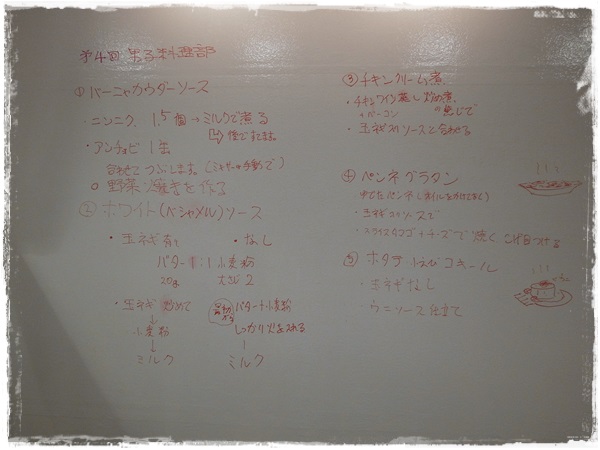 第4回 男子料理部
① バーニャカウダーソース
・ニンニク 1.5個 → ミルクで煮る
・アンチョビ 1缶
合わせてつぶします。(ミキサーか手動で)
○ 野菜 焼きを作る
② ホワイト(ベシャメル)ソース
・玉ネギ有り ・なし
バター 1:1 小麦粉
20g 大さじ2
・玉ネギ 炒めて
↓
小麦粉
↓
ミルク
バター+小麦粉
しっかり火を入れる
ミルク
③ チキンクリーム煮
・チキン ワイン蒸し 炒め煮
+ベーコン
・玉ネギ ソースと合わせる
④ ペンネグラタン
ゆでたペンネ(オイルをかけておく)
・玉ネギ ソースで
・スライスタマゴ+チーズで焼く こげ目つける
⑤ ホタテ
・玉ネギなし
ウニソース仕立て